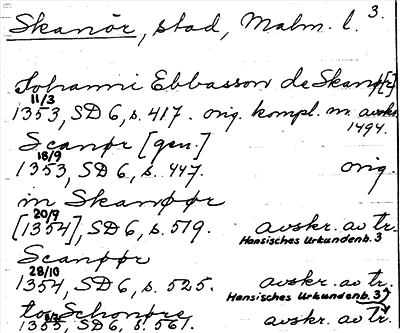 3.
Skanör, stad, Malm. l.
Johanni Ebbasson de Skanør[r]
11/3
1353, SD 6, s. 417. orig. kompl. m. avskr.
1494.
Scanør [gen.]
18/9
1353, SD 6, s. 447. orig.
in Skanøør
20/9
[1354], SD 6, s. 519. avskr. av tr.
Hansisches Urkundenb. 3
Scanøør
28/10
1354, SD 6, s. 525. avskr. av tr.
Hansisches Urkundenb. 3
to Schonøre
1355, SD 6, s. 561. avskr. av tr.